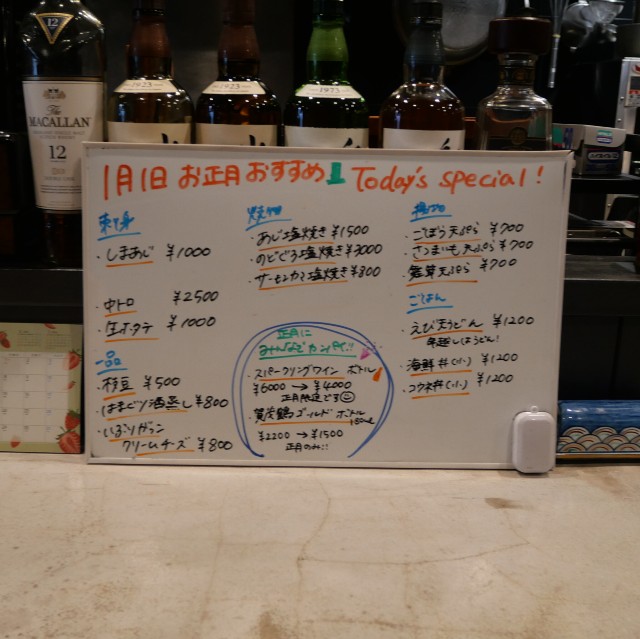 12
The
MACALLAN
12
1923
1923
1923
1月1日 お正月おすすめ Today's special!
刺身
・しまあじ ¥1000
・中トロ ¥2500
・生ホタテ ¥1000
一品
・枝豆 ¥500
・はまぐり酒蒸し ¥800
・いぶりがっこ
クリームチーズ ¥800
焼物
・あじ塩焼き ¥1500
・のどぐろ塩焼き ¥3000
・サーモンカマ塩焼き ¥800
正月に
みんなでカンパイ!!
・スパークリングワイン ボトル
¥6000 → ¥4000
正月限定です
・賀茂鶴ゴールド ボトル
180ml
¥2200 → ¥1500
正月のみ!!
揚げ物
・ごぼう天ぷら ¥700
・さつまいも天ぷら ¥700
・舞茸天ぷら ¥700
ごはん
・えび天うどん ¥1200
年越しうどん!
・海鮮丼(小) ¥1200
¥1200